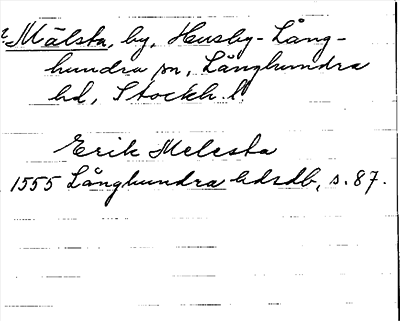 Mälsta, by, Husby-Lång-
hundra sn, Långhundra
hd, Stockh. l.
Erik Melesta
1555 Långhundra hdrdb, s. 87.